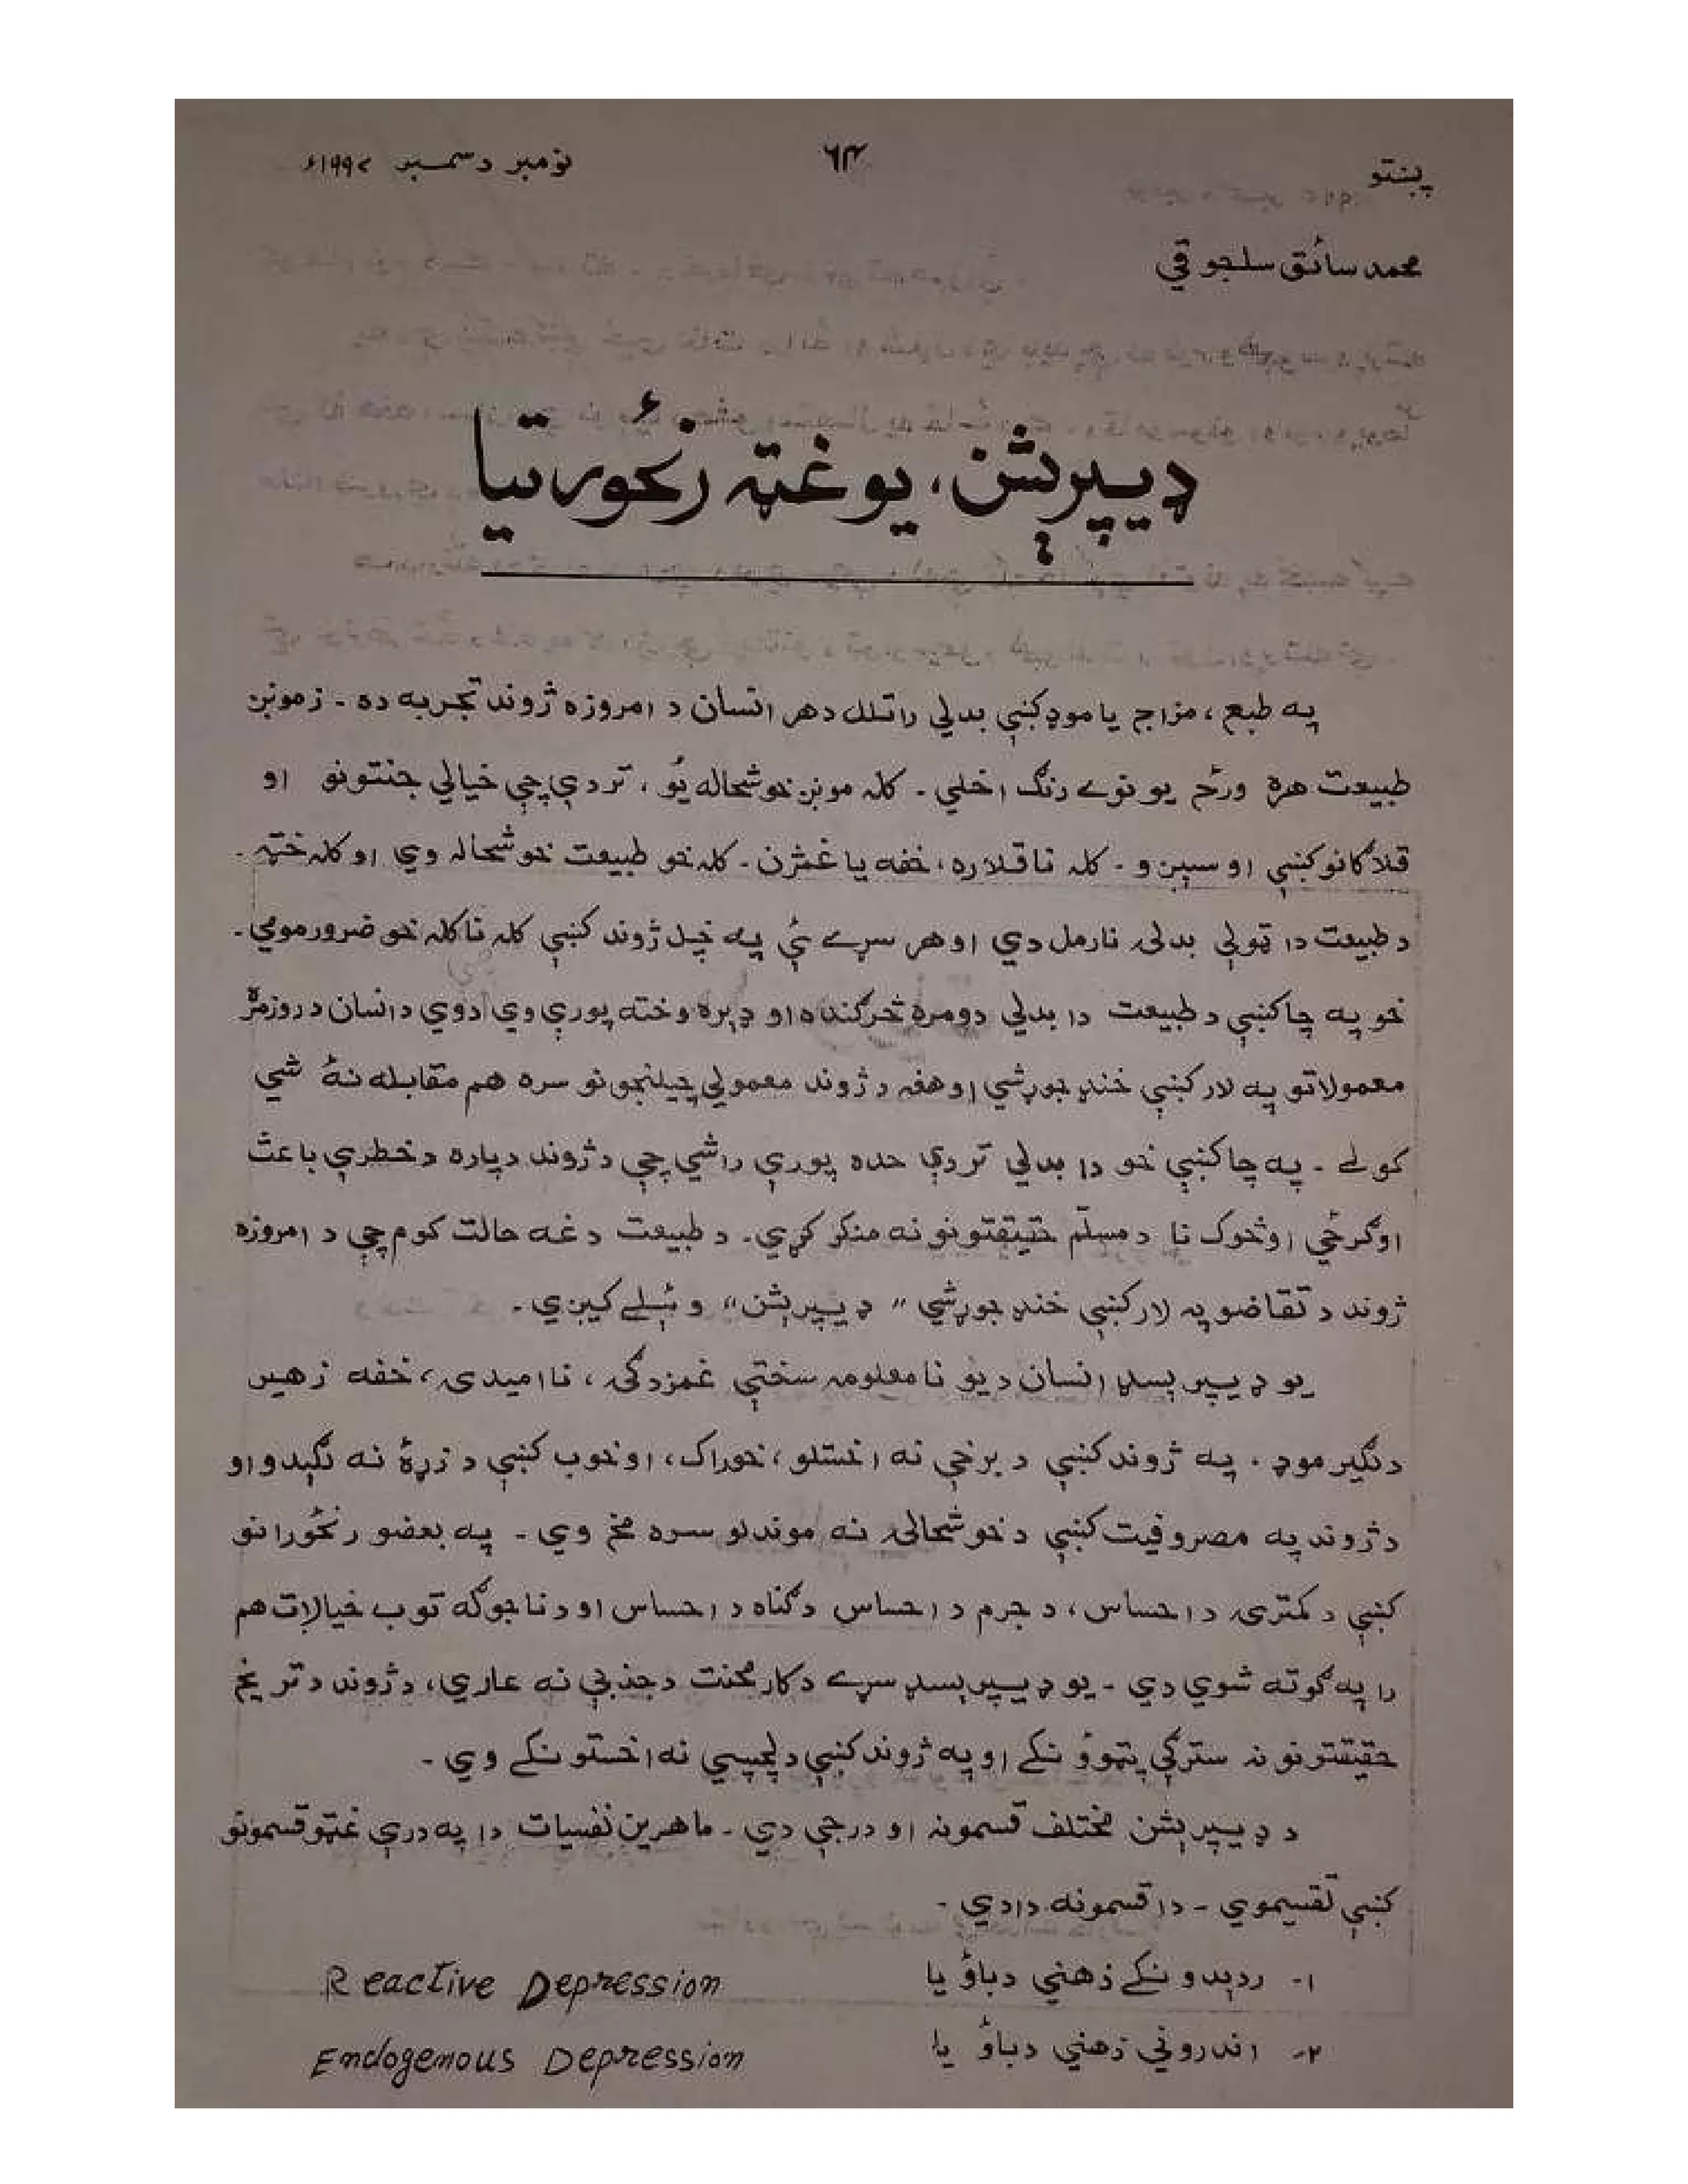 پښتو ٦٣ نومبر دسمبر ١٩٩٢ء
محمد سائق سلجوقي
ډيپرېشن، يو غټه رنځورتيا
په طبع، مزاج يا موډ کښې بدلي راتلل د هر انسان د امروزه ژوند تجربه ده ۔ زمونږ
طبيعت هره ورځ يو نوے رنګ اخلي ۔ کله مونږ خوشحاله يُو، تر دې چې خيالي جنتونو او
قلاګانو کښې اوسېږو ۔ کله ناقلاره، خفه يا غمژن ۔ کله خو طبيعت خوشحاله وي او کله خټه ۔
د طبيعت دا ټولې بدلۍ نارمل دي او هر سړے ئې په خپل ژوند کښې کله نا کله خو ضرور مومي ۔
خو په چا کښې د طبيعت دا بدلي دومره څرګنده او ډېره وخته پورې وي ادوي د انسان د روزمرّ
معمولاتو په لار کښې خنډ جوړ شي او هغه د ژوند معمولي چيلنجونو سره هم مقابله نۀ شي
کولے ۔ په چا کښې خو دا بدلي تر دې حده پورې راشي چې د ژوند دپاره د خطرې باعث
اوګرځي او څوک نا د مسلّم حقيقتونو نه منکر کړي ۔ د طبيعت دغه حالت کوم چې د امروزه
ژوند د تقاضو په لار کښې خنډ جوړ شي ”ډيپرېشن“ وئيلے کيږي ۔
يو ډيپرېسډ انسان د يو نا معلومه سختې غمزدګۍ، نااميدۍ، خفه زهير
دلګير موډ، په ژوند کښې د برخې نه اخستلو، خوراک، او خوب کښې د زړۀ نه لګېدو او
د ژوند په مصروفيت کښې د خوشحالۍ نه موندلو سره مخ وي ۔ په بعضو رنځورانو
کښې د کمترۍ د احساس، د جرم د احساس د ګناه د احساس او د ناجوګه توب خيالات هم
را په ګوته شوي دي ۔ يو ډيپرېسډ سړے د کار محنت د جذبې نه عاري، د ژوند د تريخ
حقيقتونو نه سترګې پټوؤنکے او په ژوند کښې دلچسپي نه اخستونکے وي ۔
د ډيپرېشن مختلف قسمونه او درجې دي ۔ ماهرين نفسيات دا په درې غټو قسمونو
کښې تقسيموي ۔ دا قسمونه دا دي ۔
١- ردېدونکے ذهني دباؤ يا Reactive Depression
٢- اندروني ذهني دباؤ يا Endogenous Depression